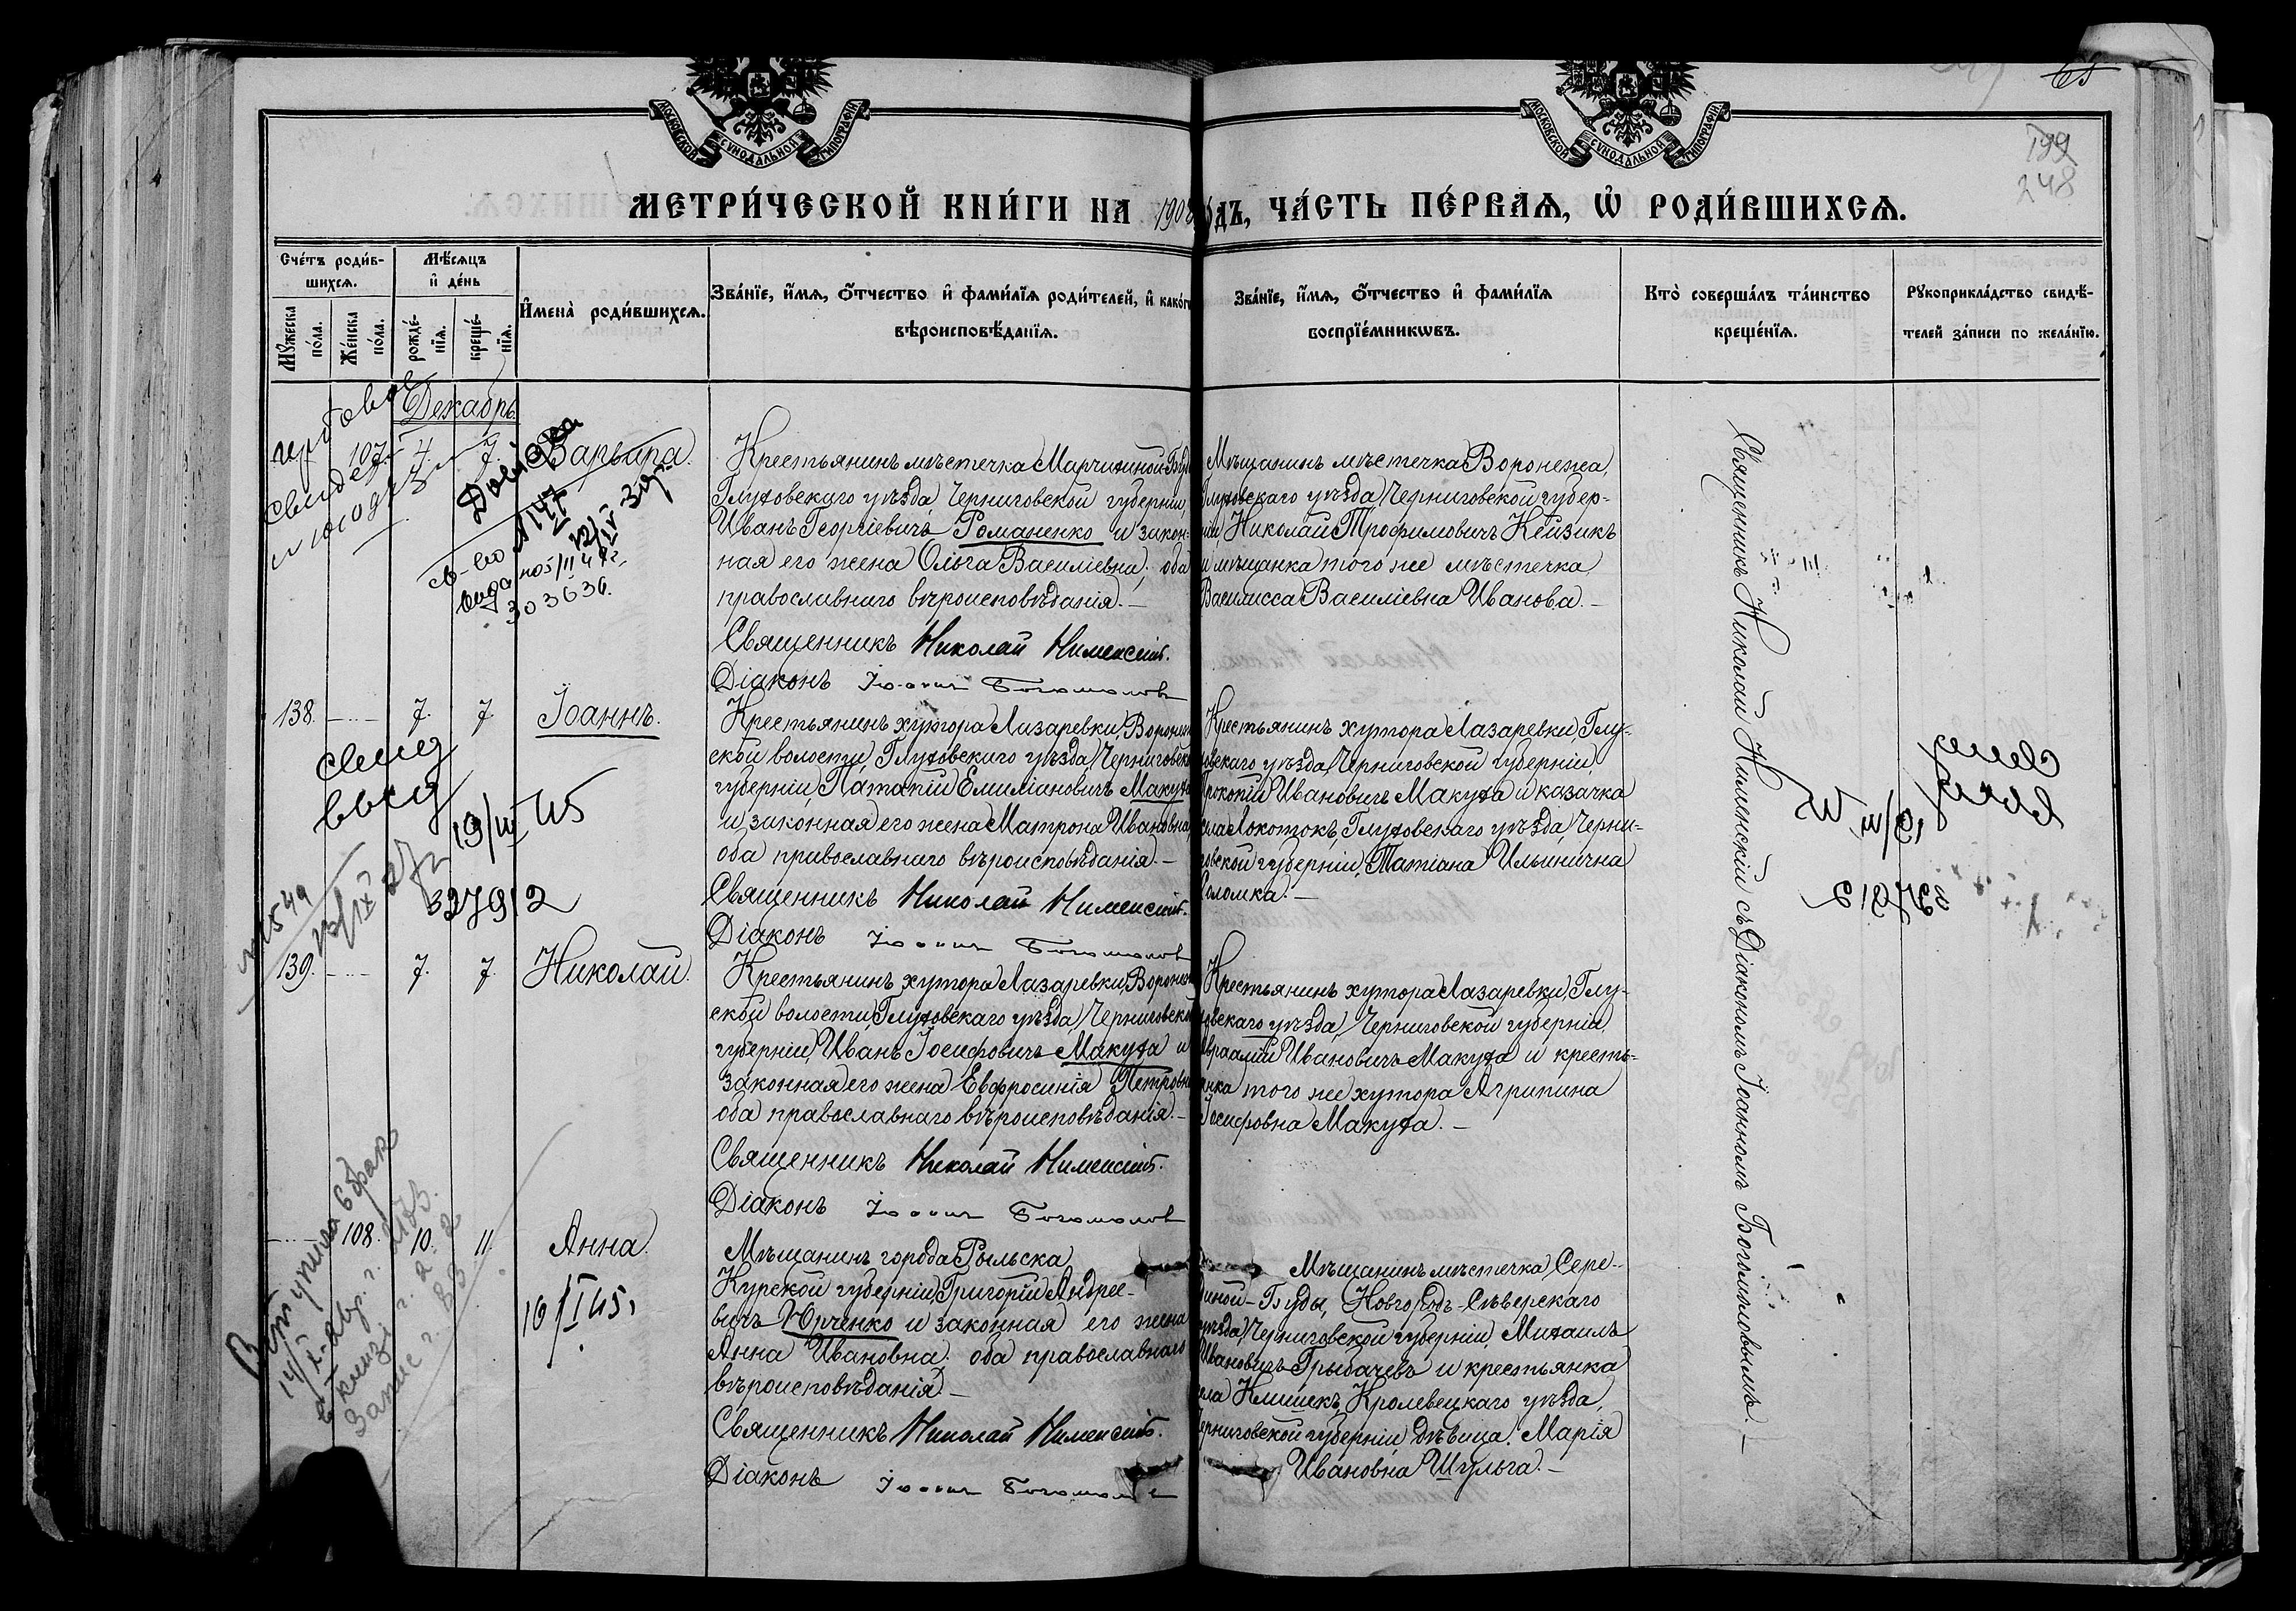 МОСКОВСКОЙ СѴНОДАЛЬНОЙ ТИПОГРАФІИ
МОСКОВСКОЙ СѴНОДАЛЬНОЙ ТИПОГРАФІИ
65
199
248
МЕТРИ́ЧЕСКОЙ КНИ́ГИ НА 1908 ГОДЪ, ЧА́СТЬ ПЕ́РВАЯ, Ѡ҆ РОДИ́ВШИХСЯ.
Сче́тъ роди́в-
шихся.
Мѣ́сяцъ
и҆ де́нь
Мꙋ́жеска
по́ла.
Же́нска
по́ла.
рожде́-
нїя.
креще́-
нїя.
И҆мена̀ роди́вшихся.
Зва́нїе, и҆́мя, ѻ҆́тчество и҆ фами́лїя роди́телей, и҆ како́гѡ
вѣроисповѣ́данїя.
Зва́нїе, и҆́мя, ѻ҆́тчество и҆ фами́лїя
воспрїе́мникѡвъ.
Кто̀ соверша́лъ та́инство
креще́нїя.
Рꙋкоприкла́дство свидѣ́-
телей за́писи по жела́нїю.
Декабрь.
107. 4. 7. Варвара.
Довідка
св-во №147
видано 5/II 47г.
303636.
Крестьянинъ мѣстечка Марчихиной-Буды
Глуховскаго уѣзда, Черниговской губерніи,
Иванъ Георгіевичъ Романенко и закон-
ная его жена Ольга Василіевна; оба
православнаго вѣроисповѣданія. –
Священникъ Николай Нименскій.
Діаконъ Іоаннъ Богомоловъ
Мѣщанинъ мѣстечка Воронежа,
Глуховскаго уѣзда, Черниговской губер-
ніи, Николай Трофимовичъ Кейзикъ
и мѣщанка того же мѣстечка
Василисса Василіевна Иванова. –
138. 7. 7. Іоаннъ.
свид
выд
19/III 45
327912
Крестьянинъ хутора Лазаревки, Воронеж-
ской волости, Глуховскаго уѣзда, Черниговской
губерніи, Патапій Емиліановичъ Макуха
и законная его жена Матрона Ивановна;
оба православнаго вѣроисповѣданія. –
Священникъ Николай Нименскій.
Діаконъ Іоаннъ Богомоловъ
Крестьянинъ хутора Лазаревки, Глу-
ховскаго уѣзда, Черниговской губерніи,
Прокопій Ивановичъ Макуха и казачка
села Локотокъ, Глуховскаго уѣзда, Черни-
говской губерніи, Татіана Ильинична
Соломка. –
139. 7. 7. Николай.
Крестьянинъ хутора Лазаревки, Воронеж-
ской волости, Глуховскаго уѣзда, Черниговской
губерніи, Иванъ Іосифовичъ Макуха и
законная его жена Евфросинія Петровна;
оба православнаго вѣроисповѣданія. –
Священникъ Николай Нименскій.
Діаконъ Іоаннъ Богомоловъ
Крестьянинъ хутора Лазаревки, Глу-
ховскаго уѣзда, Черниговской губерніи,
Авраамій Ивановичъ Макуха и кресть-
янка того же хутора Агрипина
Іосифовна Макуха. –
108. 10. 11. Анна.
16/I 45,
Вступила в брак
Мѣщанинъ города Рыльска
Курской губерніи, Григорій Андрее-
вичъ Юрченко и законная его жена
Анна Ивановна; оба православнаго
вѣроисповѣданія. –
Священникъ Николай Нименскій.
Діаконъ Іоаннъ Богомоловъ
Мѣщанинъ мѣстечка Сере-
диной-Буды, Новгородъ-Сѣверскаго
уѣзда, Черниговской губерніи, Михаилъ
Ивановичъ Грыбачевъ и крестьянка
села Клишекъ, Кролевецкаго уѣзда,
Черниговской губерніи, дѣвица Марія
Ивановна Шульга. –
Священникъ Николай Нименскій съ Діакономъ Іоанномъ Богомоловымъ. –